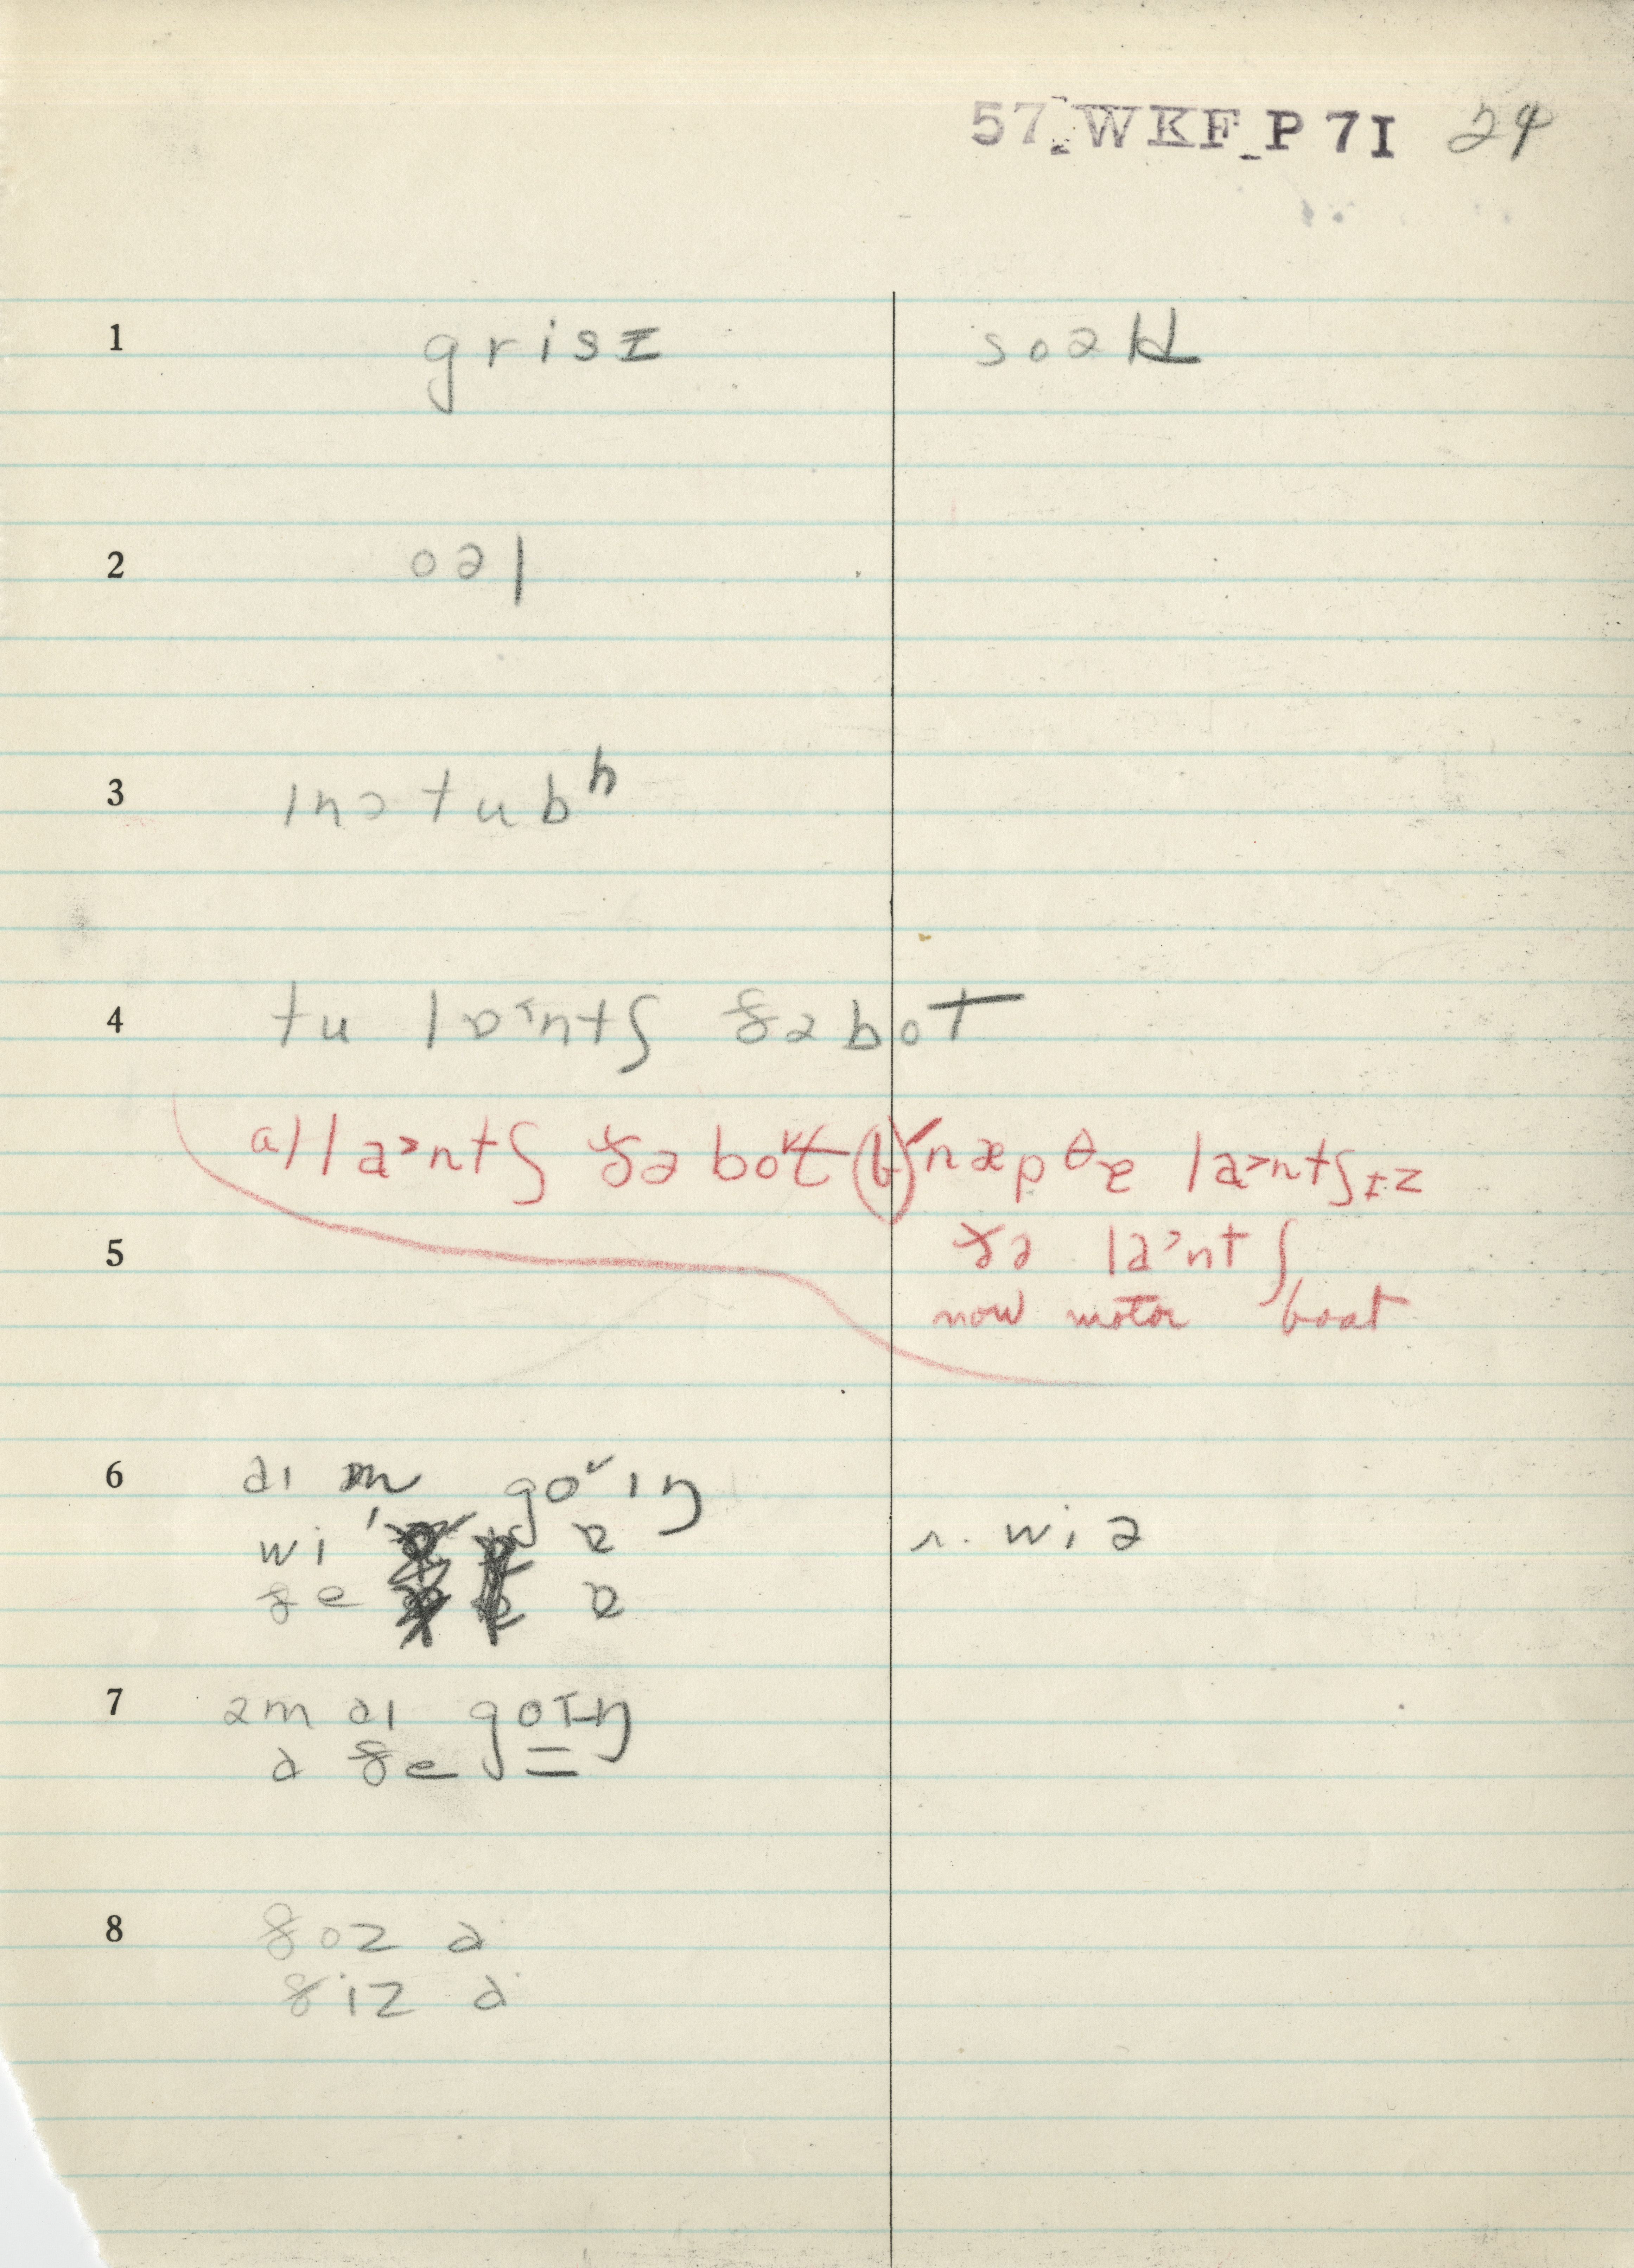 57-WKF-P 7I 24
1 grisɪ soak
2 oəl
3 ɪnətubʰ
4 tu lɒntʃ ðə bot
lɑ˃ntʃ ðə bo˅t næpθə lɑ˃ntʃɪz
5 ðə lɑ˃ntʃ
now motor boat
6 aɪ m go˅ɪŋ
wi ɒ r. wi ə
ðe ɒ
7 əm aɪ goɪŋ
a ðe
8 ðoz a
ðiz a